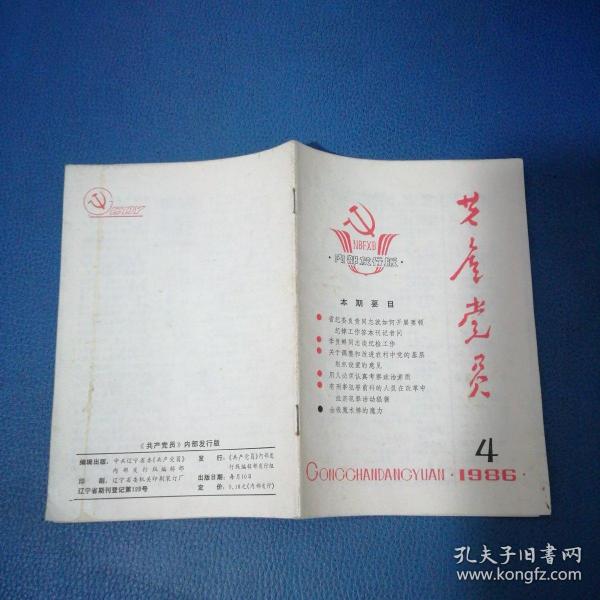 共产党员
NBFXB
·内部发行版·
本期要目
省纪委负责同志就如何开展案例
纪律工作答本刊记者问
李贵鲜同志谈纪检工作
关于调整和改进农村中党的基层
组织设置的意见
用人必须认真考察政治素质
有刑事犯罪前科的人员在改革中
经济犯罪活动猖獗
4
GONGCHANDANGYUAN·1986·
GCDY
《共产党员》内部发行版
编辑出版:中共辽宁省委《共产党员》
内部发行版编辑部
印刷:辽宁省委机关印刷装订厂
辽宁省期刊登记第199号
发行:《共产党员》内部发
行版编辑部发行组
出版日期:每月10日
定价:0.18元(内部发行)
孔夫子旧书网
www.kongfz.com